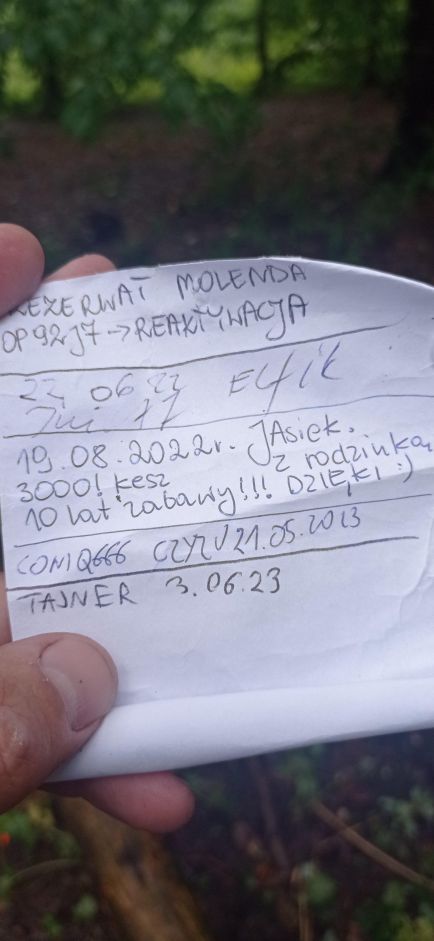 REZERWAT MOLENDA
OP92J7→REAKTYWACJA
22 06 22 Elfik
19.08.2022r. JAsiek.
3000! kesz z rodzinką
10 lat zabawy!!! DZIĘKI :)
CZYLI 21.05.2023
TAJNER 3.06.23